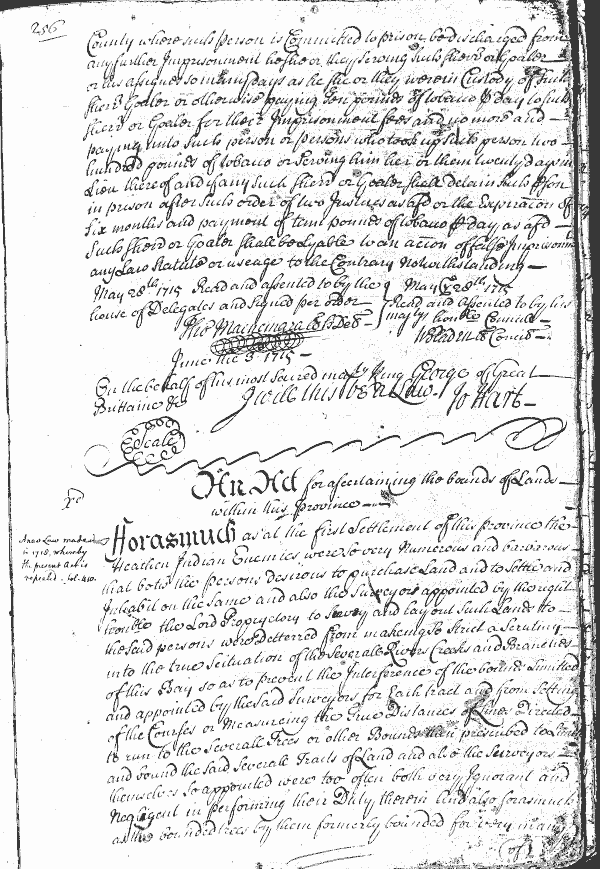 256
County where such person is Committed to prison, be discharged from
any further Imprisonment he she or they serving such Sheriff or Goaler
or his assignes so many days as he she or they were in Custody of such
Sheriff Goaler or otherwise paying Ten pounds of tobacco p day to such
Sherif or Goaler for their Imprisonment fees and no more and
paying unto such person or persons who took up such person two
hundred pounds of tobacco or serving him her or them twenty days in
Lieu thereof and if any such Sherif or Goaler shall detain such pson
in prison after such order of two Justices as afd or the Expiration of
six months and payment of tenn pounds of tobacco p day as afd
Such Sherif or Goaler shall be Lyable to an action of false Imprisonmt
any Law Statute or useage to the Contrary Notwithstanding
May 28th 1715 Read and assented to by the
house of Delegates and signed per order
May ye 28th 1715
Read and assented to by his
majtys honble Councill
June the 3 1715
On the behalf of his most Sacred majty King George of Great
Brittaine &c I will this be a Law. Jo Hart
Seale
An Act for ascertaining the bounds of Land
within this Province
A new Law made
in 1718, whereby
the present Act is
repealed. fol. 410.
Forasmuch as at the first Settlement of this province the
Heathen Indian Enemies were so very Numerous and barbarous
that both the persons desirous to purchase Land and to Settle and
Inhabit on the same and also the Surveyors appointed by the right
honble the Lord Proprietary to Survey and lay out such Lands to
the said persons were Deterred from makeing so strict a Scrutiny
into the true Scituation of the Severale Rivers Creeks and Branches
of this Bay so as to prevent the Interference of the bounds Limitted
and appointed by the said Surveyors for Each tract and from Setting
of the Courses or Measureing the true Distances of Lines Directed
to run to the Severale Trees or other Bounds then prescribed to Limit
and bound the said Severale Tracts of Land and also the Surveyors
themselves so appointed were too often both very Ignorant and
Negligent in performing their Duty therein And also forasmuch
as the bounded trees by them formerly bounded for very many
(of)